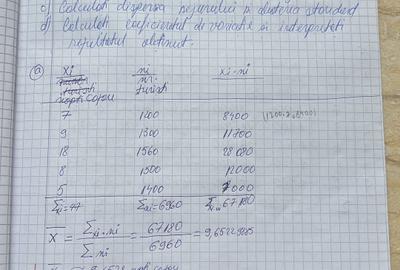 c) Calculati dispersia sejurului si abaterea standard
d) Calculati coeficientul de variatie si interpretati
rezultatul obtinut.
a) xi ni xi·ni
nr.
turisti
nopti cazau
7 1200 8400 (1200·7=8400)
9 1300 11700
18 1560 28080
8 1500 12000
5 1400 7000
Σxi=47 Σni=6960 Σxi·ni 67180
x̄ = Σxi·ni / Σni = 67180 / 6960 = 9,6522